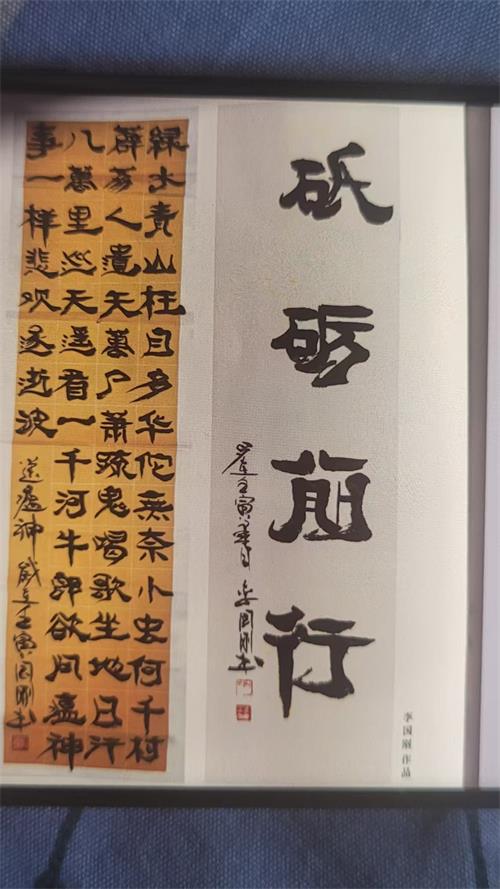 砥砺前行
壬寅春日 李国刚书
李国刚作品
绿水青山枉自多华佗無奈小虫何千村
薜荔人遗矢萬户萧疏鬼唱歌坐地日行
八萬里巡天遥看一千河牛郎欲问瘟神
事一样悲欢逐逝波
送瘟神 岁在壬寅国刚书